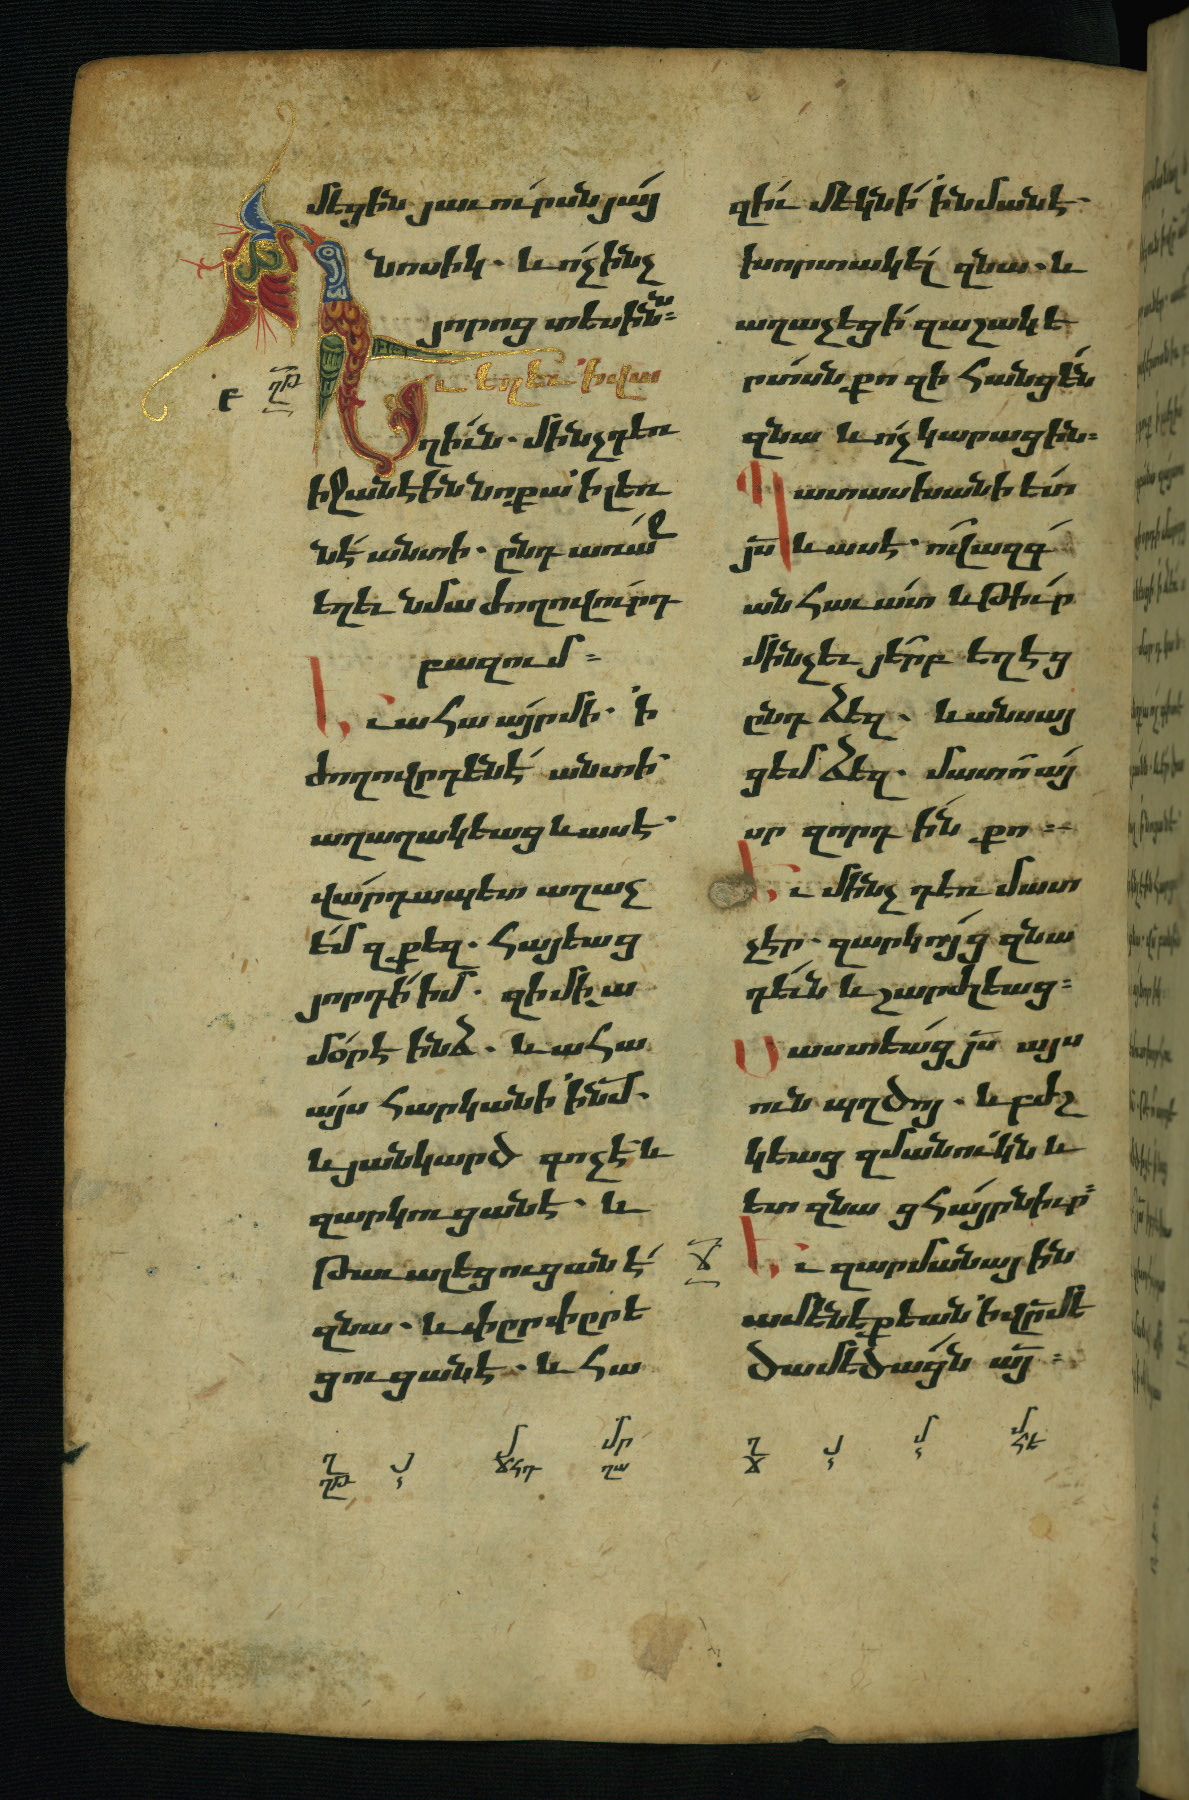 մեցին յաւուրսն յայ
նոսիկ. և ոչ ինչ
յորոց տեսին՛ն:
Եւ եղև ՛ի վա
ղիւն. մինչդեռ
իջանէին նոքա ՛ի լեռ
նէ անտի. ընդ առաջ
եղև նմա ժողովուրդ
բազում :
Եւ ահա այր մի. ՛ի
ժողովրդենէ անտի
աղաղակեաց և ասէ.
վարդապետ աղաչ
եմ զքեզ. հայեաց
յորդի իմ. զի մի ա
մօր է ինձ. և ահա
այս հարկանի ՛ինմ.
և յանկարծ գոչէ և
զարկուցանէ. և
թաւալեցուցանէ
զնա. և փըրփըրե
ցուցանէ. և հա
զիւ մեկնի ՛ինմանէ.
խորտակել զնա. և
աղաչեցի զաշակե
րտսն քո զի հանցեն
զնա և ոչ կարացին:
Պատասխանի ետ
յս և ասէ. ով ազգ
անհաւատ և թիւր
մինչև յերբ եղէց
ընդ ձեզ. և անսայ
ցեմ ձեզ. մատո այ
սր զորդ՛ին քո :
Եւ մինչ դեռ մատ
չէր. զարկոյց զնա
դևն և շարժլեաց:
Սաստեաց յս այս
ուն պղծոյ. և բժշ
կեաց զմանուկն և
ետ զնա ցհայր ՛նիւր:
Եւ զարմանային
ամենեքեան ՛ի վր մե
ծամեծացն ՛այ :